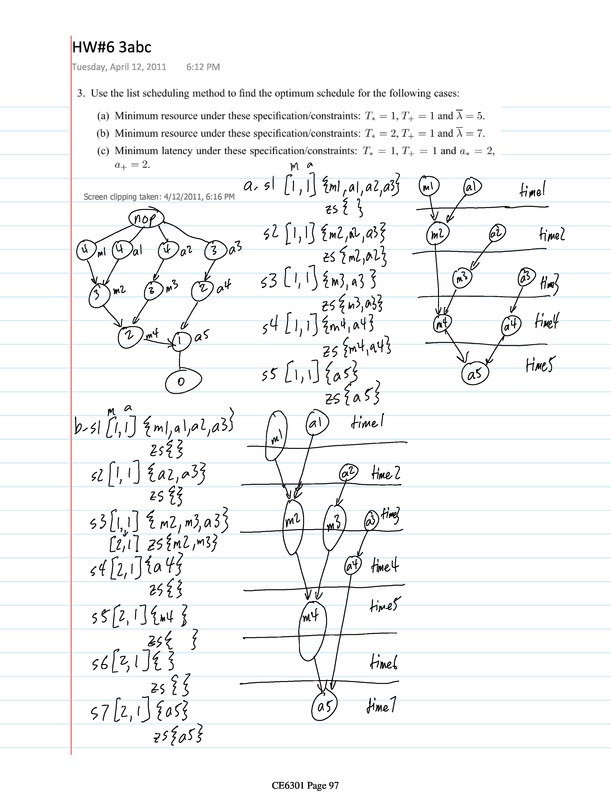 HW#6 3abc
Tuesday, April 12, 2011 6:12 PM
3. Use the list scheduling method to find the optimum schedule for the following cases:
(a) Minimum resource under these specification/constraints: T* = 1, T+ = 1 and λ̅ = 5.
(b) Minimum resource under these specification/constraints: T* = 2, T+ = 1 and λ̅ = 7.
(c) Minimum latency under these specification/constraints: T* = 1, T+ = 1 and a* = 2,
a+ = 2.
Screen clipping taken: 4/12/2011, 6:16 PM
nop
4 m1 4 a1 4 a2 3 a3
3 m2 3 m3 2 a4
2 m4 1 a5
0
m a
a. s1 [1,1] {m1,a1,a2,a3}
zs{ }
s2 [1,1] {m2,a2,a3}
zs{m2,a2}
s3 [1,1] {m3,a3}
zs{m3,a3}
s4 [1,1] {m4,a4}
zs{m4,a4}
s5 [1,1] {a5}
zs{a5}
m1 a1 time1
m2 a2 time2
m3 a3 time3
m4 a4 time4
a5 time5
m a
b. s1 [1,1] {m1,a1,a2,a3}
zs{}
s2 [1,1] {a2,a3}
zs{}
s3 [1,1] {m2,m3,a3}
[2,1] zs{m2,m3}
s4 [2,1] {a4}
zs{}
s5 [2,1] {m4 }
zs{ }
s6 [2,1] { }
zs{}
s7 [2,1] {a5}
zs{a5}
m1 a1 time1
a2 time2
m2 m3 a3 time3
a4 time4
m4 time5
time6
a5 time7
CE6301 Page 97